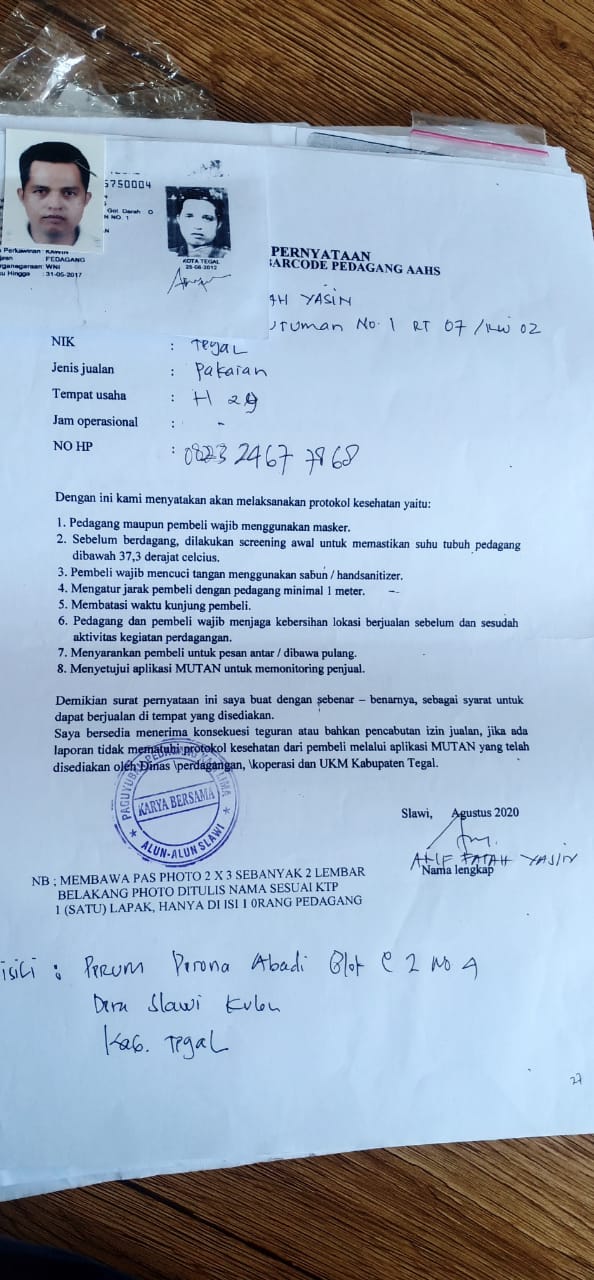 5750004
Gol. Darah : O
NO. 1
Perkawinan : KAWIN
PEDAGANG
WNI
Hingga : 31-05-2017
KOTA TEGAL
PERNYATAAN
BARCODE PEDAGANG AAHS
AH YASIN
No. 1 RT 07 / RW 02
NIK : Tegal
Jenis jualan : Pakaian
Tempat usaha : H 29
Jam operasional : -
NO HP : 0823 2467 7868
Dengan ini kami menyatakan akan melaksanakan protokol kesehatan yaitu:
1. Pedagang maupun pembeli wajib menggunakan masker.
2. Sebelum berdagang, dilakukan screening awal untuk memastikan suhu tubuh pedagang
dibawah 37,3 derajat celcius.
3. Pembeli wajib mencuci tangan menggunakan sabun / handsanitizer.
4. Mengatur jarak pembeli dengan pedagang minimal 1 meter.
5. Membatasi waktu kunjung pembeli.
6. Pedagang dan pembeli wajib menjaga kebersihan lokasi berjualan sebelum dan sesudah
aktivitas kegiatan perdagangan.
7. Menyarankan pembeli untuk pesan antar / dibawa pulang.
8. Menyetujui aplikasi MUTAN untuk memonitoring penjual.
Demikian surat pernyataan ini saya buat dengan sebenar – benarnya, sebagai syarat untuk
dapat berjualan di tempat yang disediakan.
Saya bersedia menerima konsekuesi teguran atau bahkan pencabutan izin jualan, jika ada
laporan tidak mematuhi protokol kesehatan dari pembeli melalui aplikasi MUTAN yang telah
disediakan oleh Dinas \perdagangan, \koperasi dan UKM Kabupaten Tegal.
PAGUYUBAN PEDAGANG KAKI LIMA
KARYA BERSAMA
ALUN-ALUN SLAWI
Slawi, Agustus 2020
FATAH YASIN
Nama lengkap
NB ; MEMBAWA PAS PHOTO 2 X 3 SEBANYAK 2 LEMBAR
BELAKANG PHOTO DITULIS NAMA SESUAI KTP
1 (SATU) LAPAK, HANYA DI ISI 1 0RANG PEDAGANG
isili : Perum Perona Abadi Blok C 2 No 4
Desa Slawi Kulon
Kab. Tegal
27